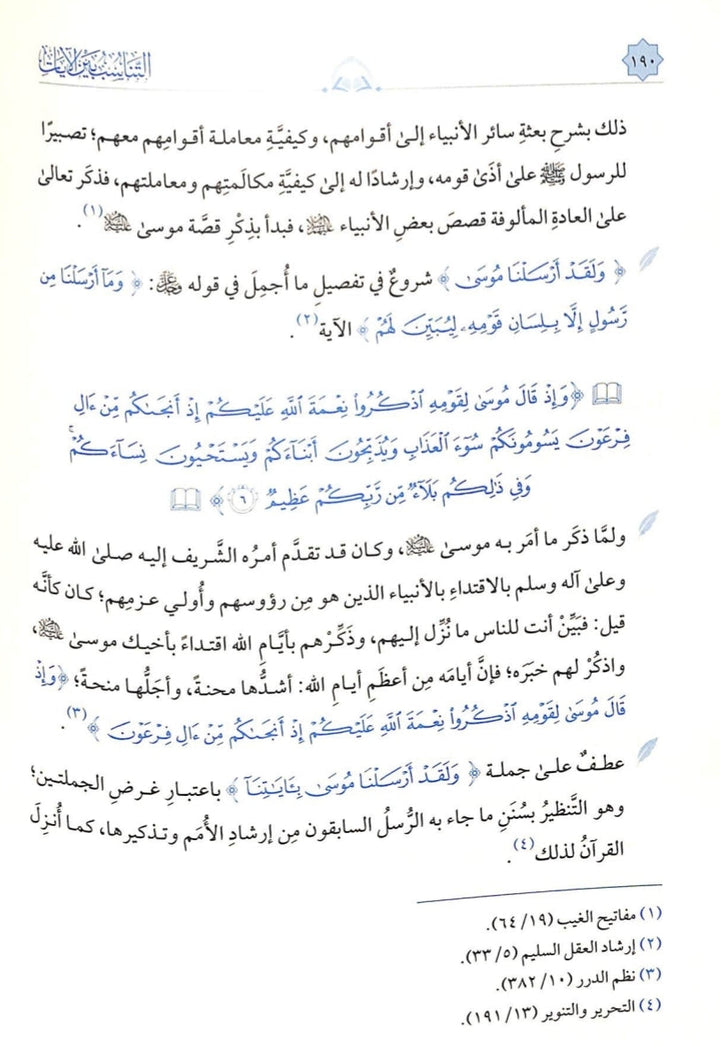 ١٩٠
التناسب بين الآيات
ذلك بشرحِ بعثةِ سائر الأنبياء إلىٰ أقوامهم، وكيفيَّةِ معاملة أقوامِهم معهم؛ تصبيرًا
للرسول ﷺ علىٰ أذىٰ قومه، وإرشادًا له إلىٰ كيفيَّةِ مكالَمتِهم ومعاملتهم، فذكَر تعالىٰ
علىٰ العادةِ المألوفة قصصَ بعضِ الأنبياء عليهم السلام، فبدأ بذِكْرِ قصَّة موسىٰ عليه السلام(١).
﴿ وَلَقَدۡ أَرۡسَلۡنَا مُوسَىٰ ﴾ شروعٌ في تفصيلِ ما أُجمِلَ في قوله عز وجل: ﴿ وَمَآ أَرۡسَلۡنَا مِن
رَّسُولٍ إِلَّا بِلِسَانِ قَوۡمِهِۦ لِيُبَيِّنَ لَهُمۡ ﴾ الآية(٢).
﴿وَإِذۡ قَالَ مُوسَىٰ لِقَوۡمِهِ ٱذۡكُرُواْ نِعۡمَةَ ٱللَّهِ عَلَيۡكُمۡ إِذۡ أَنجَىٰكُم مِّنۡ ءَالِ
فِرۡعَوۡنَ يَسُومُونَكُمۡ سُوٓءَ ٱلۡعَذَابِ وَيُذَبِّحُونَ أَبۡنَآءَكُمۡ وَيَسۡتَحۡيُونَ نِسَآءَكُمۡۚ
وَفِي ذَٰلِكُم بَلَآءٞ مِّن رَّبِّكُمۡ عَظِيمٞ ٦﴾
ولمَّا ذكَر ما أمَر به موسىٰ عليه السلام، وكان قد تقدَّم أمرُه الشَّريف إليه صلىٰ الله عليه
وعلىٰ آله وسلم بالاقتداءِ بالأنبياء الذين هو مِن رؤوسهم وأُولي عزمِهم؛ كان كأنَّه
قيل: فبَيِّنْ أنت للناس ما نُزِّل إليهم، وذكِّرْهم بأيَّامِ الله اقتداءً بأخيك موسىٰ عليه السلام،
واذكُرْ لهم خبَرَه؛ فإنَّ أيامَه مِن أعظَمِ أيامِ الله: أشدُّها محنةً، وأجَلُّها منحةً؛ ﴿وَإِذۡ
قَالَ مُوسَىٰ لِقَوۡمِهِ ٱذۡكُرُواْ نِعۡمَةَ ٱللَّهِ عَلَيۡكُمۡ إِذۡ أَنجَىٰكُم مِّنۡ ءَالِ فِرۡعَوۡنَ ﴾(٣).
عطفٌ علىٰ جملة ﴿ وَلَقَدۡ أَرۡسَلۡنَا مُوسَىٰ بِـَٔايَٰتِنَآ ﴾ باعتبارِ غرضِ الجملتين؛
وهو التَّنظيرُ بسُنَنِ ما جاء به الرُّسلُ السابقون مِن إرشادِ الأُمَم وتذكيرها، كما أُنزِلَ
القرآنُ لذلك(٤).
(١) مفاتيح الغيب (١٩/ ٦٤).
(٢) إرشاد العقل السليم (٥/ ٣٣).
(٣) نظم الدرر (١٠/ ٣٨٢).
(٤) التحرير والتنوير (١٣/ ١٩١).